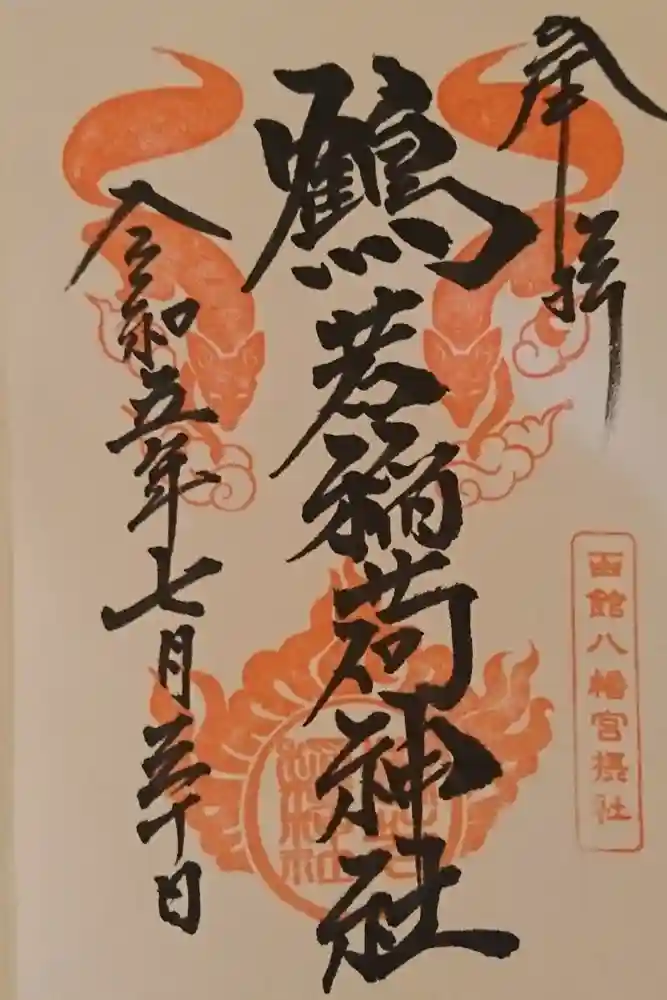 奉拝
函館八幡宮摂社
鶴若稲荷神社
令和五年七月三十日